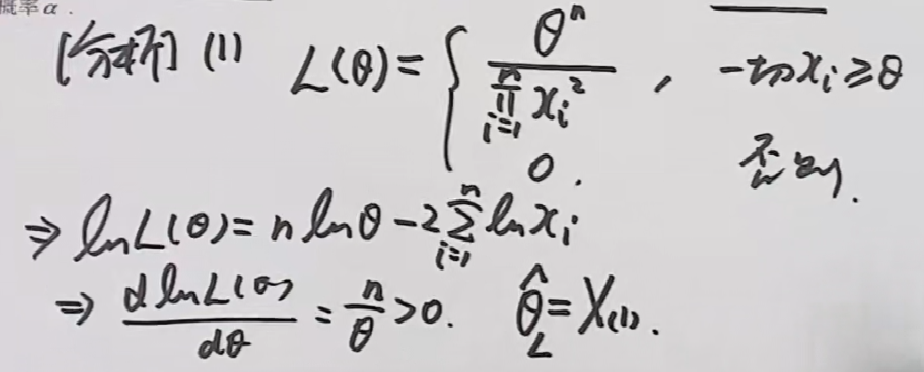 概率α.
[分析] (1) L(θ)= { θⁿ / ∏ᵢ₌₁ⁿ xᵢ² , 一切xᵢ≥θ
0. 否则.
⇒ lnL(θ)= n lnθ - 2 ∑ᵢ₌₁ⁿ ln xᵢ
⇒ d lnL(θ) / dθ = n/θ >0. θ̂_L = X₍₁₎.